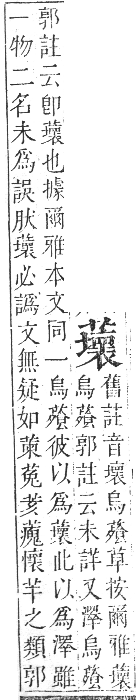 蘾
舊註音壞烏蕵草按爾雅蘾
烏蕵郭註云未詳又澤烏蕵
郭註云卽蘾也據爾雅本文同一烏蕵彼以爲蘾此以爲澤雖
一物二名未爲誤肰蘾必譌文無疑如菄菟荄藱懷羊之類郭